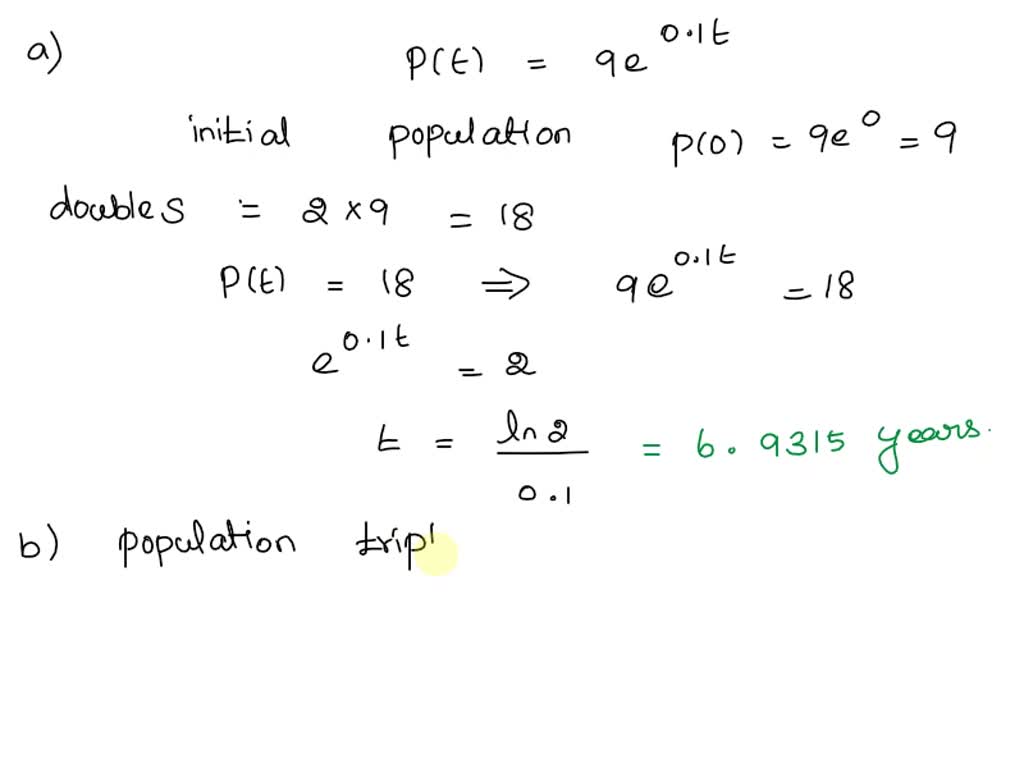 a) P(t) = 9e^0.1t
initial population P(0) = 9e^0 = 9
doubles = 2 × 9 = 18
P(t) = 18 ⇒ 9e^0.1t = 18
e^0.1t = 2
t = ln 2 / 0.1 = 6.9315 years.
b) population tripl